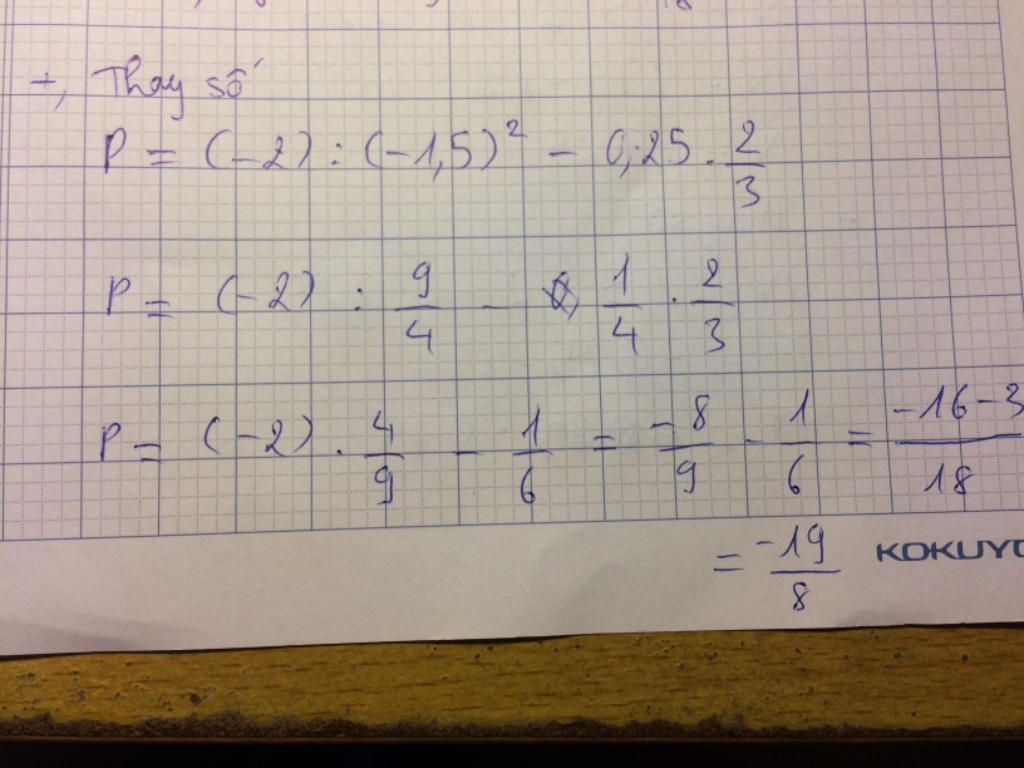 +, Thay số
P = (-2) : (-1,5)² - 0,25 . 2/3
P = (-2) : 9/4 - 1/4 . 2/3
P = (-2) . 4/9 - 1/6 = -8/9 - 1/6 = -16-3/18
= -19/8
KOKUYO